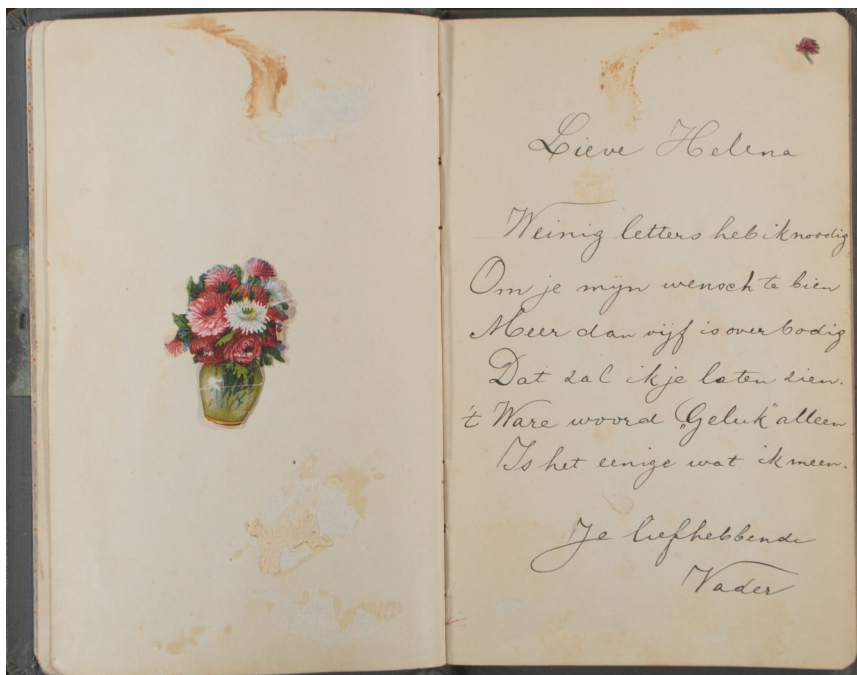 Lieve Helena
Weinig letters heb ik noodig
Om je mijn wensch te bien
Meer dan vijf is overbodig
Dat zal ik je laten zien.
't Ware woord „Geluk" alleen
Is het eenige wat ik meen.
Je liefhebbende
Vader